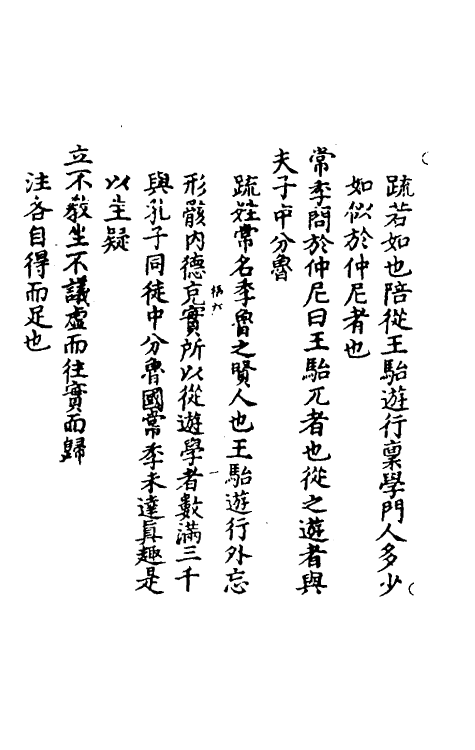 疏若如也陪從王駘遊行稟學門人多少
如似於仲尼者也
常季問於仲尼曰王駘兀者也從之遊者與
夫子中分魯
疏姓常名季魯之賢人也王駘遊行外忘
形骸內德充實所以從遊學者數滿三千
與孔子同徒中分魯國常季未達真趣是
以生疑
立不教坐不議虛而往實而歸
注各自得而足也